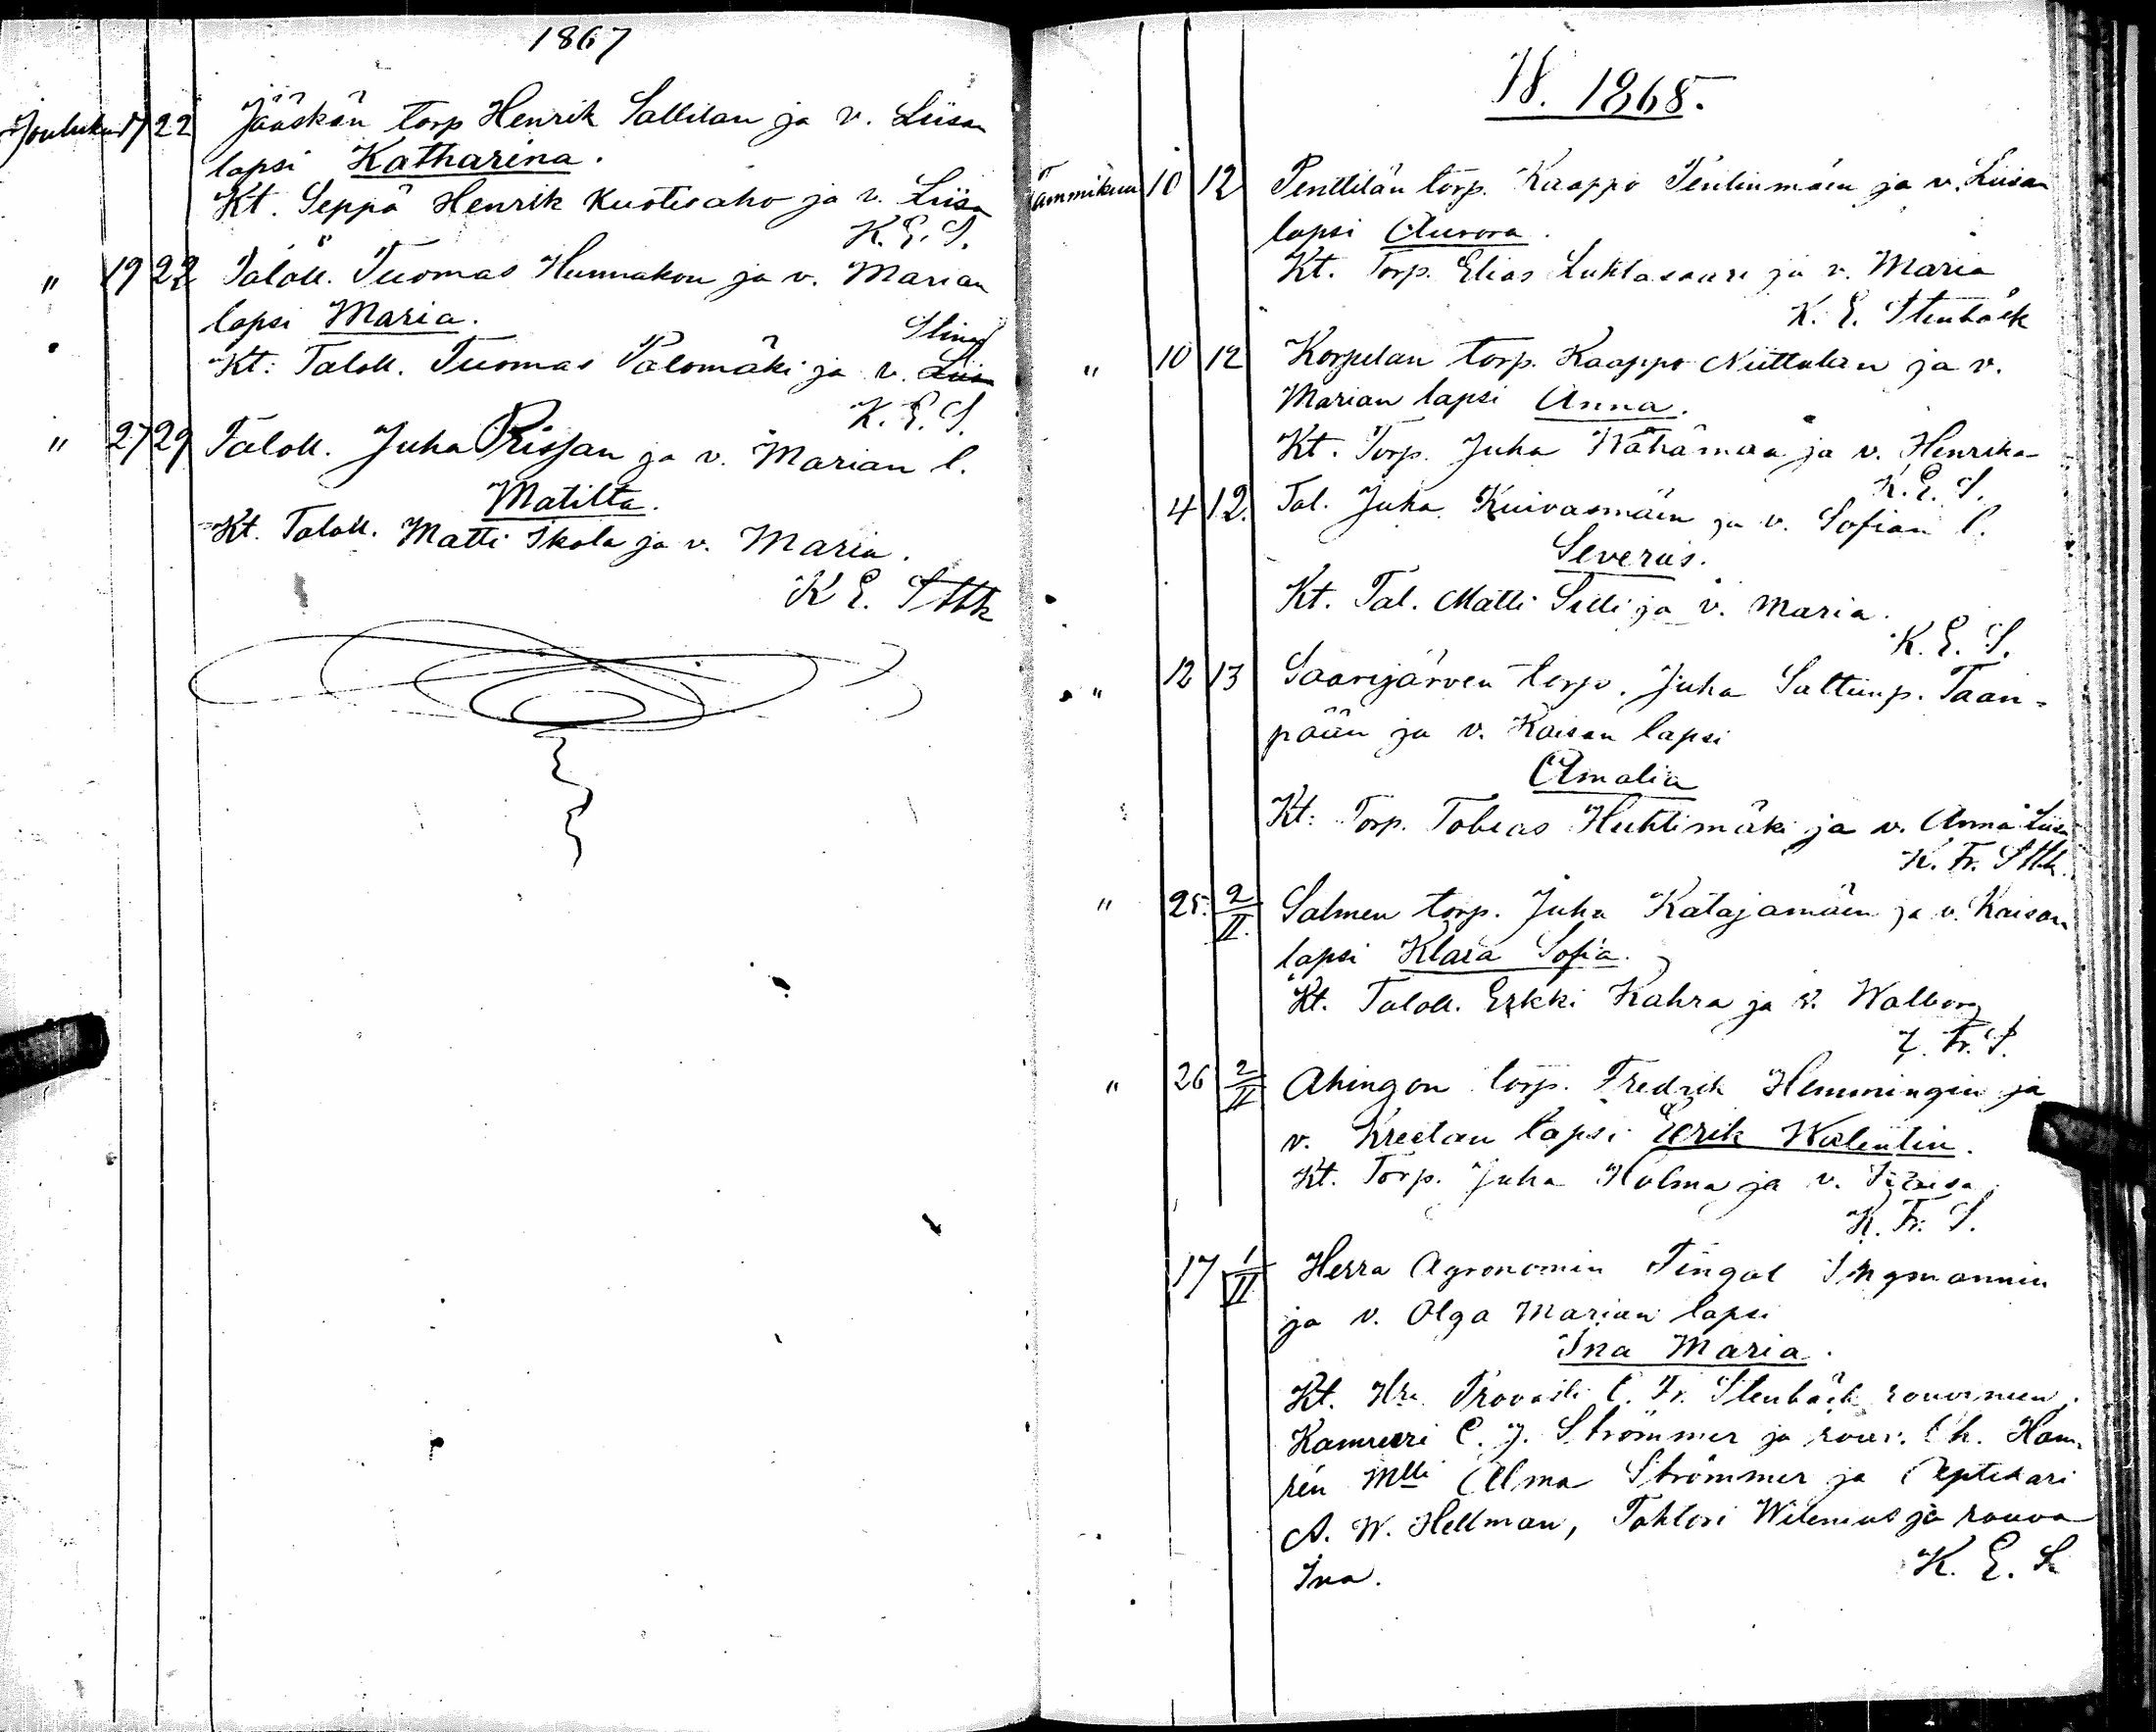 1867
Jouluku 17 22 Jääskän torp Henrik Sallilan ja v. Liisan
lapsi Katharina.
Kt. Seppä Henrik Kustisaho ja v. Liisa
K. E. S.
" 19 22 Taloll. Tuomas Hunnakon ja v. Marian
lapsi Maria.
Stina
Kt: Taloll. Tuomas Palomäki ja v. Liisa
K. E. S.
" 27 29 Taloll. Juha Rissan ja v. Marian l.
Matilta.
Kt. Taloll. Matti Skola ja v. Maria.
K E. Stbk
V. 1868.
Tammikuu 10 12 Penttilän torp. Kaappo Penlinmäen ja v. Liisan
lapsi Aurora.
Kt. Torp. Elias Luhtasaari ja v. Maria
K. E. Stenbäck
" 10 12 Korpelan torp. Kaappo Niittulan ja v.
Marian lapsi Anna.
Kt. Torp. Juha Wähämaa ja v. Henrika
K. E. S.
4 12. Tal. Juha Kuivasmäen ja v. Sofian l.
Severus.
Kt. Tal. Matti Silli ja v. Maria.
K. E. S.
" 12 13 Saarijärven torp. Juha Saltunp. Taan=
pään ja v. Kaisan lapsi
Amalia
Kt: Torp. Tobias Huhtimäki ja v. Anna Liisa
K. Fr. Stbk.
" 25. 2/II. Salmen torp. Juha Katajamäen ja v. Kaisan
lapsi Klara Sofia.
Kt. Taloll. Erkki Kahra ja v. Walborg
Fr. S.
" 26 2/II Ahingon torp. Fredrik Hemmingin ja
v. Kreetan lapsi Eerik Walentin.
Kt. Torp. Juha Holma ja v.
K. Fr. S.
17 1/II Herra Agronomin Fingal Ingmannin
ja v. Olga Marian lapsi
Ina Maria.
Kt. Hra Provasti C. Fr. Stenbäck rouvineen,
Kamreeri C. J. Strömmer ja rouv. Ch. Ham=
rén Mlli Alma Strömmer ja Aptekari
A. W. Hellman, Tohtori Wilenius ja rouva
Ina.
K. E. S.